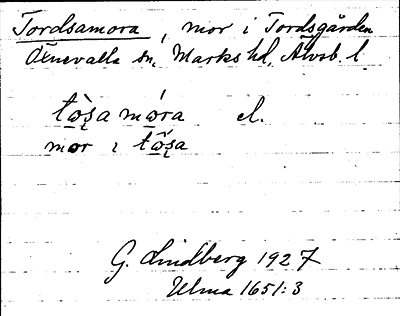 Tordsamora, mor i Tordsgården
Öxnevalla sn, Marks hd, Älvsb. l.
tò̱ʂa mó̱ra el.
mor ı tò̱ʂa
G. Lindberg 1927
Ulma 1651:3